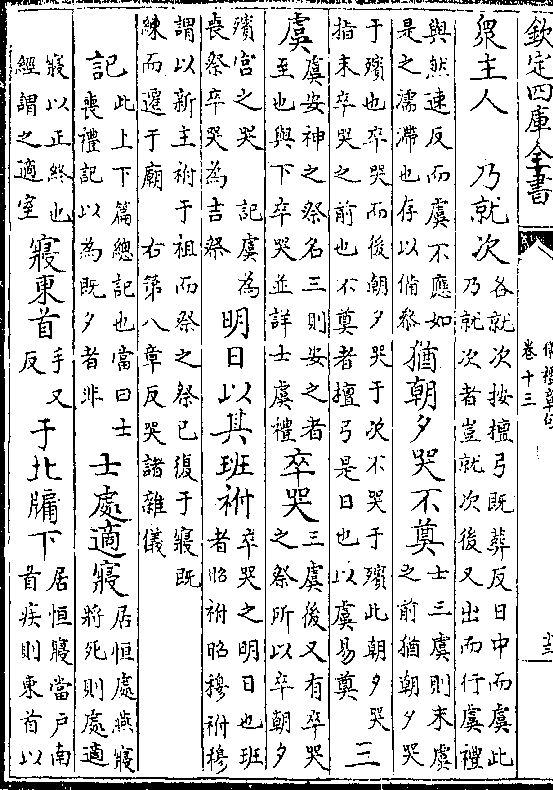 欽定四庫全書
儀禮章句
卷十三
衆主人　乃就次各就次按檀弓既葬反日中而虞此乃就次者豈就次後又出而行虞禮
與然速反而虞不應如是之濡滯也存以備叅猶朝夕哭不奠士三虞則未虞之前猶朝夕哭
于殯也卒哭而後朝夕哭于次不哭于殯此朝夕哭指未卒哭之前也不奠者檀弓是日也以虞易奠三
虞虞安神之祭名三則安之者至也與下卒哭並詳士虞禮卒哭三虞後又有卒哭之祭所以卒朝夕
殯宫之哭　記虞為喪祭卒哭為吉祭明日以其班祔卒哭之明日也班者昭祔昭穆祔穆
謂以新主祔于祖而祭之祭已復于寢既練而遷于廟　右第八章反哭諸雜儀
記此上下篇總記也當曰士喪禮記以為既夕者非士處適寢居恒處燕寢將死則處適
寢以正終也經謂之適室寢東首手又反于北牖下居恒寢當户南首疾則東首以